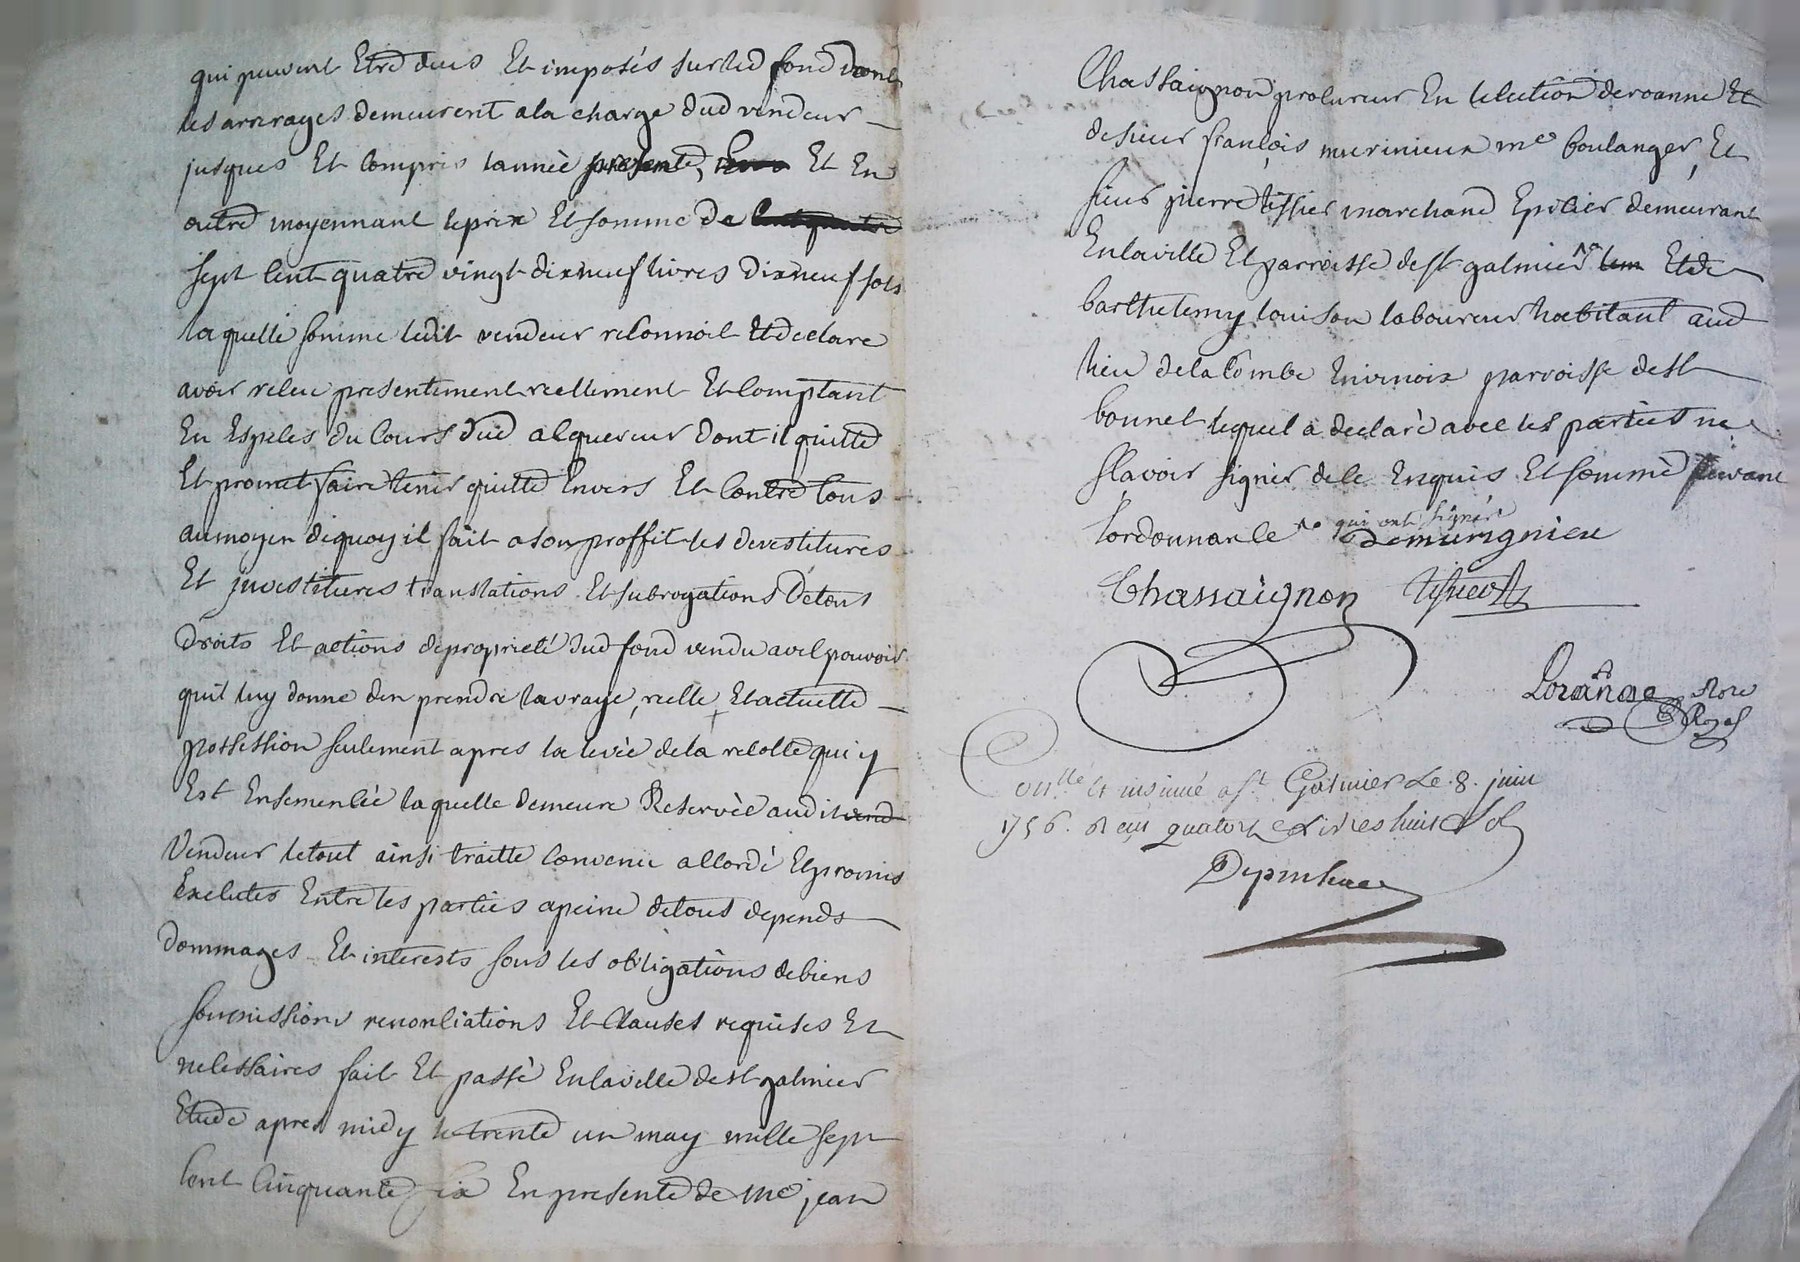 qui peuvent Etre deus Et imposés surled fond dont
les arrerages demeurent ala charge dud vendeur
jusques Et Compris lannèe presente, Et En
outre moyennant leprix Et somme de
sept Cent quatre vingt dixneuf livres dixneuf sols
laquelle somme ledit vendeur reConnoit Etdeclare
avoir receu presentement reellement EtComptant
En Especes du Cours dud acquereur dont il quitte
Et promet faire tenir quitte Envers Et Contre tous
aumoyen dequoy il fait a son proffit les devestitures
Et juvestitures translations Etsubrogations Detous
droits Et actions depropriete dud fond vendu avec pouvoir
quil luy donne den prendre lavraye, reelle, Etactuelle
possession seulement apres la levèe dela recolte qui y
Est Ensemencèe laquelle demeure Reservèe audit vend
Vendeur letout ainsi traitte Convenu accordè Etpromis
Executes Entre les parties apeine detous depends
dommages Et interests sous les obligations debiens
soumissions renonciations Et Clauses requises Et
necessaires fait Et passè Enlaville dest galmier
Etude apres midy le trente un may mille sept
Cent Cinquante six En presence de me jean
Chassaignon procureur En lelection deroanne Et
desieur françois murinieux me boulanger, Et
sieur pierre tissier marchand Epicier demeurant
Enlaville Et parroisse dest galmier Etde
barthelemy louison laboureur habitant aud
lieu dela Combe Enversoix parroisse dest
bonnet lequel a declarè avec les parties ne
sCavoir signer dece Enquis Et sommè suivant
lordonnance qui ont signé
Demurignieu
Chassaignon Tissier
Loranac Nore
Royal
Conllé et insinué a St Galmier Le 8 juin
1756. Reçu quatorze Livres huit Sol